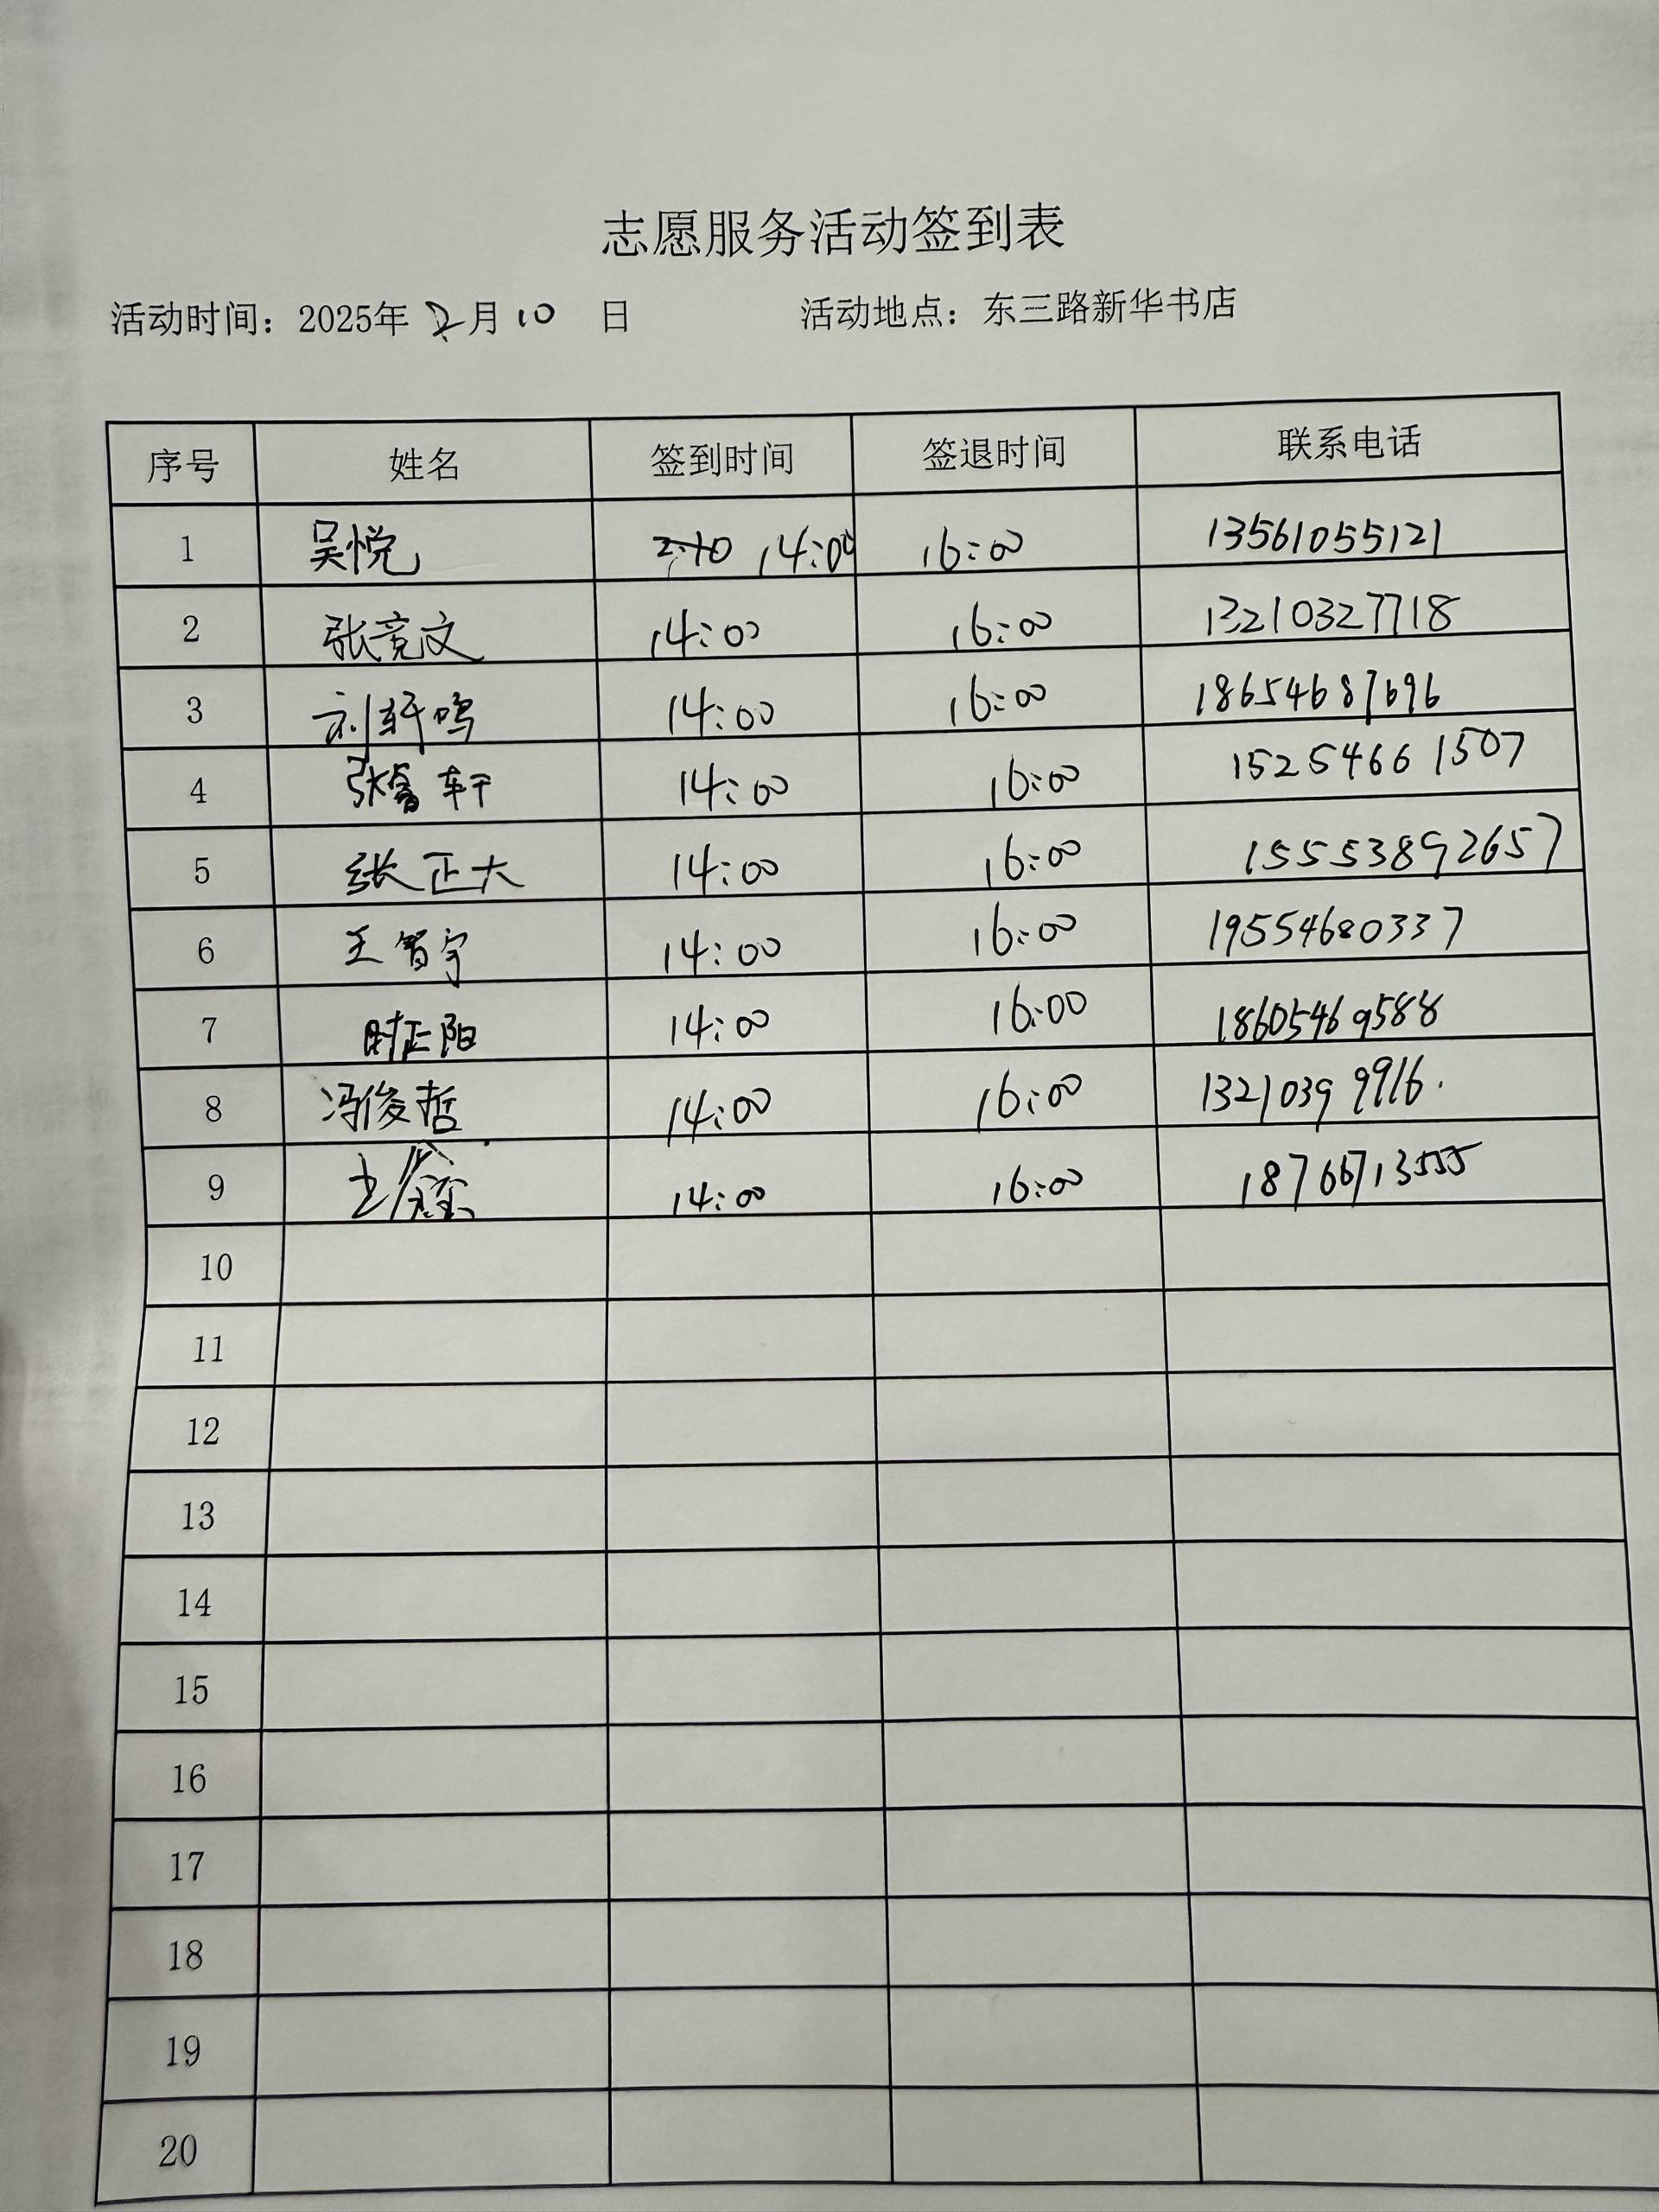 志愿服务活动签到表
活动时间：2025年 2月10 日 活动地点：东三路新华书店
序号 姓名 签到时间 签退时间 联系电话
1 吴悦 14:00 16:00 13561055121
2 张竞文 14:00 16:00 13210327718
3 刘轩鸣 14:00 16:00 18654687696
4 张睿轩 14:00 16:00 15254661507
5 张正大 14:00 16:00 15553892657
6 王智宇 14:00 16:00 19554680337
7 时正阳 14:00 16:00 18605469588
8 冯俊哲 14:00 16:00 13210399916.
9 14:00 16:00 18766713555
10
11
12
13
14
15
16
17
18
19
20